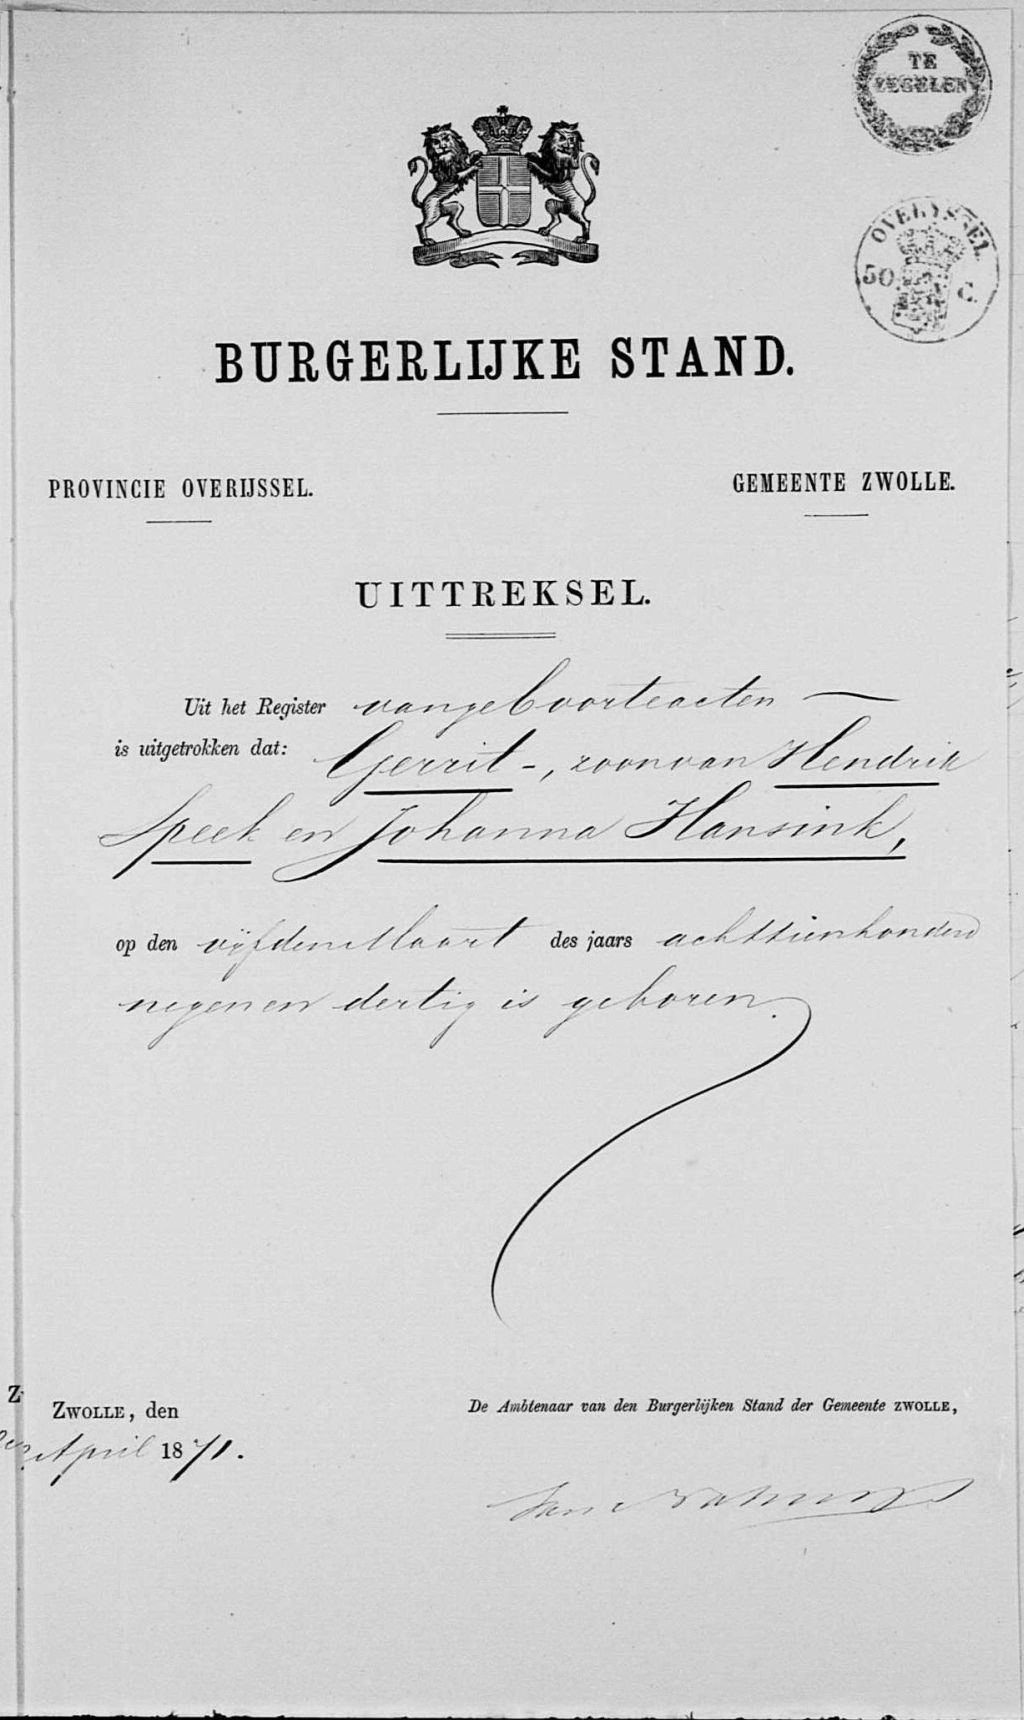 TE
ZEGELEN
OVERYSSEL
50 C.
BURGERLIJKE STAND.
PROVINCIE OVERIJSSEL.
GEMEENTE ZWOLLE.
UITTREKSEL.
Uit het Register van geboorteacten
is uitgetrokken dat: Gerrit -, zoon van Hendrik
Speek en Johanna Hansink,
op den vijfden Maart des jaars achttienhonderd
negen en dertig is geboren.
Z
ZWOLLE, den
April 1871.
De Ambtenaar van den Burgerlijken Stand der Gemeente ZWOLLE,